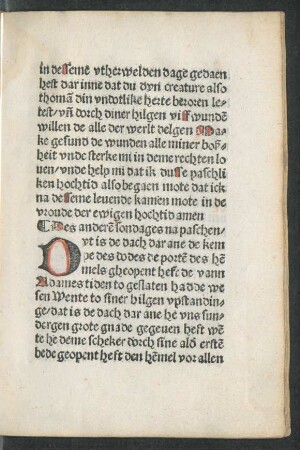 in dessemē vtherwelden dage gedaen
hest dar inne dat du dyn creature also
thomā din vndotlike herte beroren le⸗
test/ vn̄ dorch diner hilgen viff wundē
willen de alle der werlt delgen Ma⸗
ke gesund de wunden alle miner boß⸗
heit vnde sterke mi in deme rechten lo⸗
uen/ vnde help mi dat ik dusse paschli⸗
ken hochtid also begaen mote dat ick
na desseme leuende kamen mote in de
vroude der ewigen hochtid amen
Des anderē sondages na paschen
Dyt is de dach dar ane de kem
pe des dodes de portē des he
mels gheopent heft/ de vann
Adames tiden to geslaten hadde we
sen Wente to siner hilgen vpstandin⸗
ge/ dat is de dach dar ane he vns sun⸗
dergen grote gnade gegeuen hest wē
te he deme scheker dorch sine alō erstē
bede geopent hest den hēmel vor allen